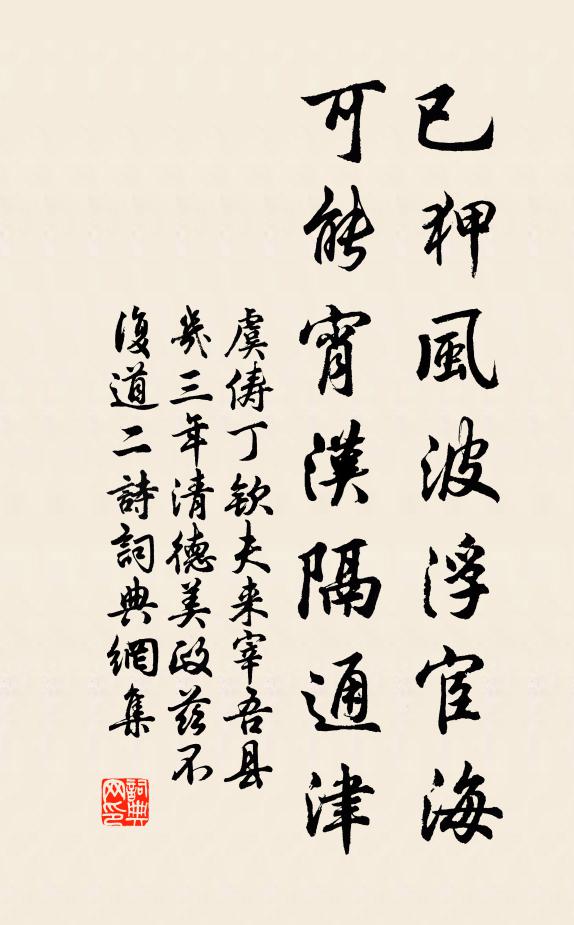 已狎風波浮宦海
可能宵漢隔通津
虞儔丁欽夫来宰吾县
幾三年清德美政茲不
復道二詩詞典網集
詞典網印